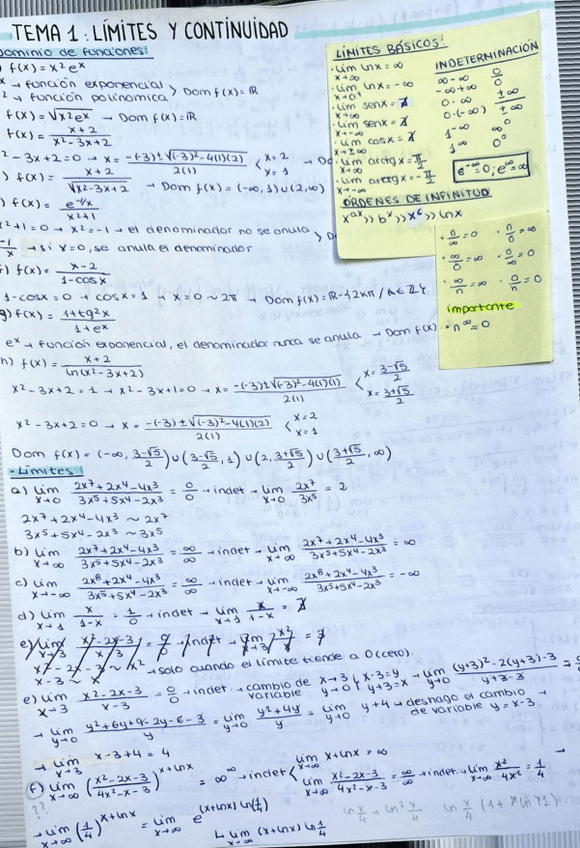 TEMA 1: LÍMITES Y CONTINUIDAD
Dominio de funciones:
f(x) = x² eˣ
→ función exponencial > Dom f(x) = ℝ
→ función polinómica
f(x) = √x²eˣ → Dom f(x) = ℝ
f(x) = (x+2)/(x²-3x+2)
²-3x+2=0 → x = (-(-3)±√(-3)²-4(1)(2))/2(1) < x=2
x=1
f(x) = (x+2)/√(x²-3x+2) → Dom f(x) = (-∞,1)∪(2,∞)
f(x) = e^(-1/x)/(x²+1)
x²+1=0 → x²=-1 → el denominador no se anula
-1/x → si x=0, se anula el denominador
f(x) = (x-2)/(1-cosx)
1-cosx=0 → cosx=1 → x=0 ~ 2π → Dom f(x) = ℝ-{2kπ / k∈ℤ}
g) f(x) = (1+tg²x)/(1+eˣ)
eˣ → función exponencial, el denominador nunca se anula → Dom f(x)
h) f(x) = (x+2)/(ln(x²-3x+2))
x²-3x+2=1 → x²-3x+1=0 → x = (-(-3)±√(-3)²-4(1)(1))/2(1) < x = (3-√5)/2
x = (3+√5)/2
x²-3x+2=0 → x = (-(-3)±√(-3)²-4(1)(2))/2(1) < x=2
x=1
Dom f(x) = (-∞, (3-√5)/2)∪((3-√5)/2, 1)∪(2, (3+√5)/2)∪((3+√5)/2, ∞)
LÍMITES BÁSICOS:
· lim x→∞ lnx = ∞
· lim x→0⁺ lnx = -∞
· lim x→∞ senx = ∄
· lim x→-∞ senx = ∄
· lim x→±∞ cosx = ∄
· lim x→∞ arctgx = π/2
· lim x→-∞ arctgx = -π/2
INDETERMINACIÓN
∞-∞ 0/0
-∞+∞
0·∞ ±∞
0·(-∞) ±∞
1^-∞ ∞⁰
1^∞ 0⁰
e^-∞=0; e^∞=∞
ÓRDENES DE INFINITUD
x^ax >> b^x >> x^c >> lnx
· n/∞ = 0 · n/0 = ∞
· ∞/0 = ∞ · 0/∞ = 0
· ∞/n = ∞ · 0/n = 0
importante
· n^∞ = 0
· Límites:
a) lim x→0 (2x⁷+2x⁴-4x³)/(3x⁵+5x⁴-2x³) = 0/0 → indet → lim x→0 2x⁷/3x⁵ = 2
2x⁷+2x⁴-4x³ ~ 2x⁷
3x⁵+5x⁴-2x³ ~ 3x⁵
b) lim x→∞ (2x⁷+2x⁴-4x³)/(3x⁵+5x⁴-2x³) = ∞/∞ → indet → lim x→∞ (2x⁷+2x⁴-4x³)/(3x⁵+5x⁴-2x³) = ∞
c) lim x→-∞ (2x⁸+2x⁴-4x³)/(3x⁵+5x⁴-2x³) = ∞/∞ → indet → lim x→-∞ (2x⁸+2x⁴-4x³)/(3x⁵+5x⁴-2x³) = -∞
d) lim x→1 x/(1-x) = 1/0 → indet → lim x→1 x/(1-x) = ∄
e) lim x→3 (x²-2x-3)/(x-3) = 0/0 → indet → lim x→3
x²-2x-3 ~ x² → solo cuando el límite tiende a 0 (cero).
x-3 ~ x
e) lim x→3 (x²-2x-3)/(x-3) = 0/0 → indet. → cambio de variable x→3 y→0 { x-3=y y+3=x → lim y→0 ((y+3)²-2(y+3)-3)/(y+3-3) =
→ lim y→0 (y²+6y+9-2y-6-3)/y = lim y→0 (y²+4y)/y = lim y→0 y+4 → deshago el cambio de variable y=x-3 →
→ lim x→3 x-3+4 = 4
(f) lim x→∞ ((x²-2x-3)/(4x²-x-3))^(x+lnx) = ∞^∞ → indet < lim x→∞ x+lnx = ∞
lim x→∞ (x²-2x-3)/(4x²-x-3) = ∞/∞ → indet. → lim x→∞ x²/4x² = 1/4
??
→ lim x→∞ (1/4)^(x+lnx) = lim x→∞ e^((x+lnx) ln(1/4))
↳ lim x→∞ (x+lnx) ln 1/4